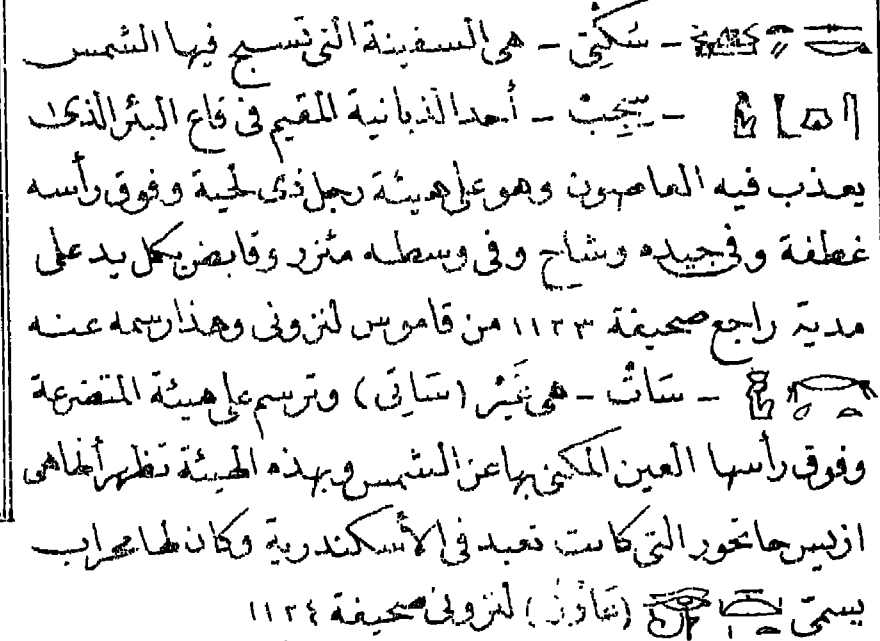 – سَكِتِى – هى السفينة التى تسبح فيها الشمس
– سِجِبْ – أحد الزبانية المقيم فى قاع البئر الذى
يعذب فيه العاصون وهو على هيئة رجل ذى لحية وفوق رأسه
غطفة وفى جيده وشاح وفى وسطه مئزر وقابض بكل يد على
مدية راجع صحيفة ١١٢٣ من قاموس لنزونى وهذا رسمه عنه
– سَاتْ – هى غَيْر (سَاتِى) وترسم على هيئة المتضرعة
وفوق رأسها العين المكنى بها عن الشمس وبهذه الهيئة تظهر أنها هى
ازيس حاتحور التى كانت تعبد فى الأسكندرية وكان لها محراب
يسمى لنزونى صحيفة ١١٢٤